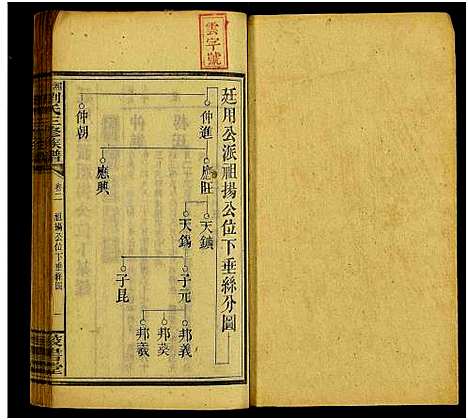 雲字號
廷用公派祖揚公位下垂絲分圖
仲進
仲朝
應旺
應興
天鎮
天錫
子元
子昆
邦義
邦葵
邦羲
劉氏三修族譜
卷二
祖揚公位下垂絲圖
一